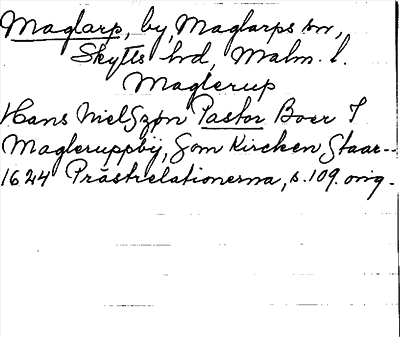 Maglarp, by, Maglarps sn,
Skytts hd, Malm. l.
Maglerup
Hans Nielszøn Pastor Boer I
Magleruppbÿ, Som Kircken Staar--
1624 Prästrelationerna, s. 109. orig.